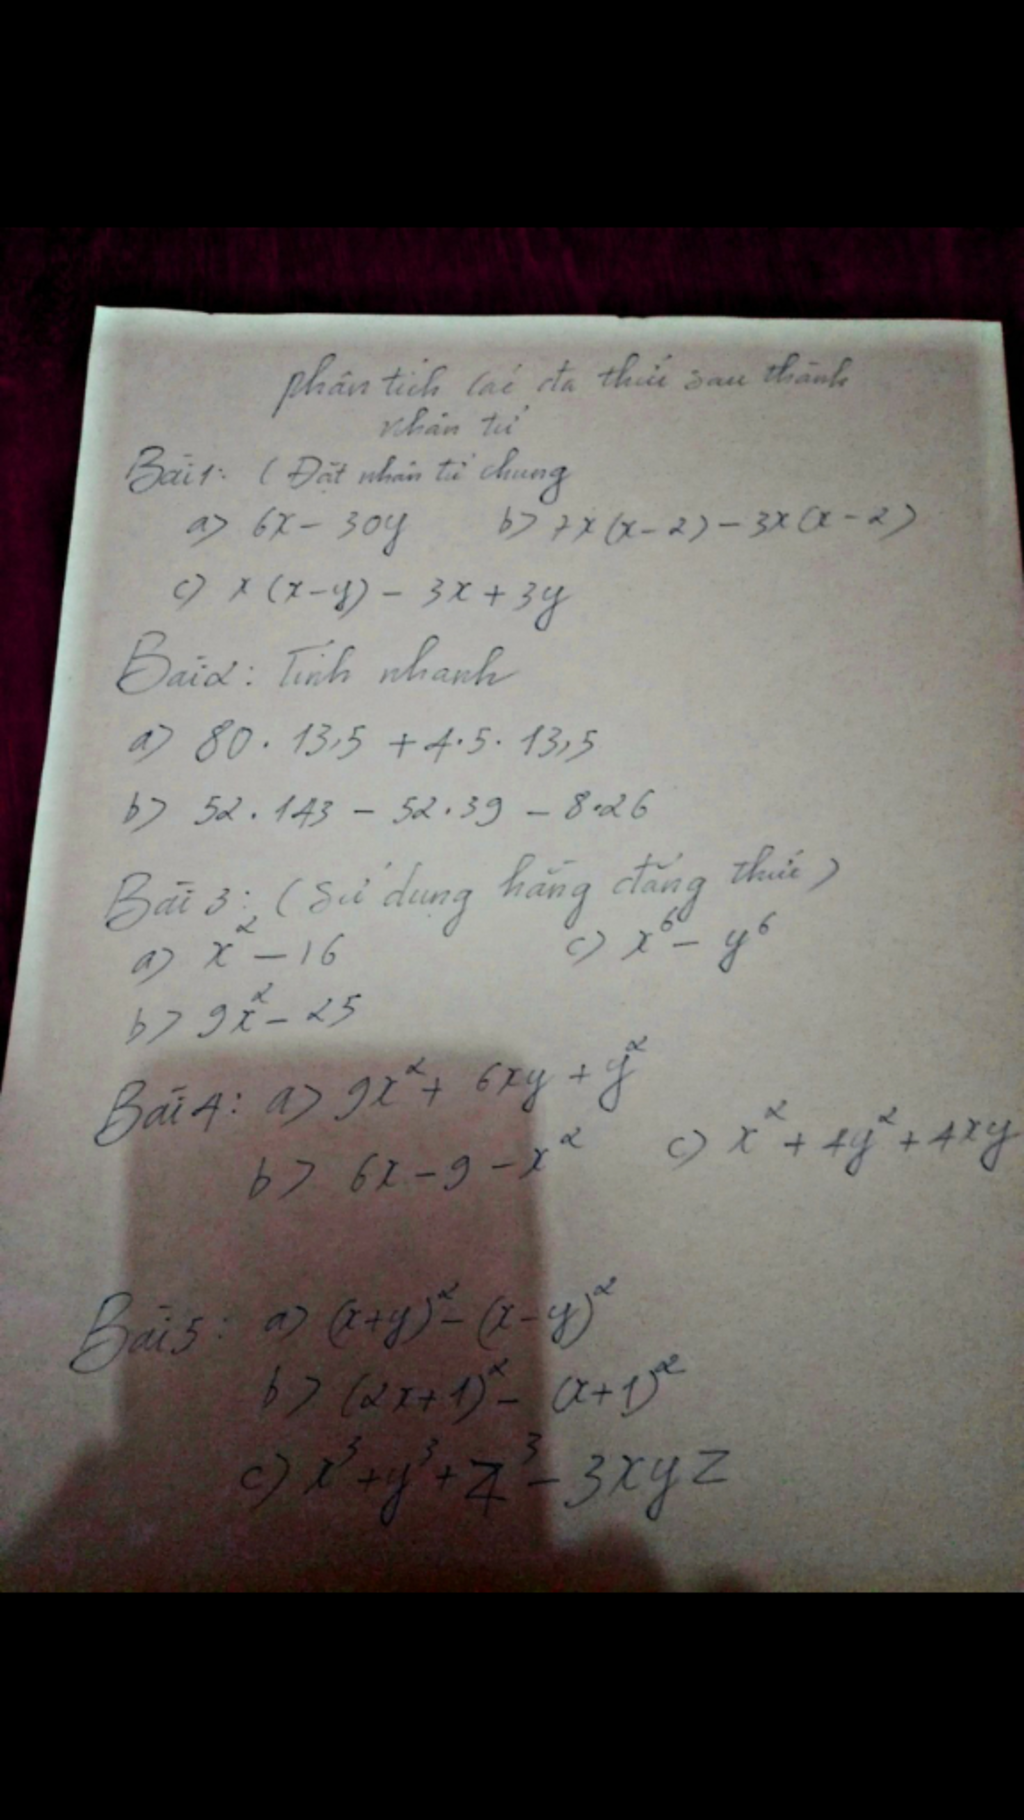 phân tích các đa thức sau thành
nhân tử
Bài 1: ( Đặt nhân tử chung
a) 6x - 30y b) 7x(x-2) - 3x(x-2)
c) x(x-y) - 3x + 3y
Bài 2: Tính nhanh
a) 80 . 13,5 + 4.5. 13,5
b) 52 . 143 - 52.39 - 8.26
Bài 3: ( Sử dụng hằng đẳng thức )
a) x² - 16 c) x⁶ - y⁶
b) 9x² - 25
Bài 4: a) 9x² + 6xy + y²
b) 6x - 9 - x² c) x² + 4y² + 4xy
Bài 5: a) (x+y)² - (x-y)²
b) (2x+1)² - (x+1)²
c) x³ + y³ + z³ - 3xyz